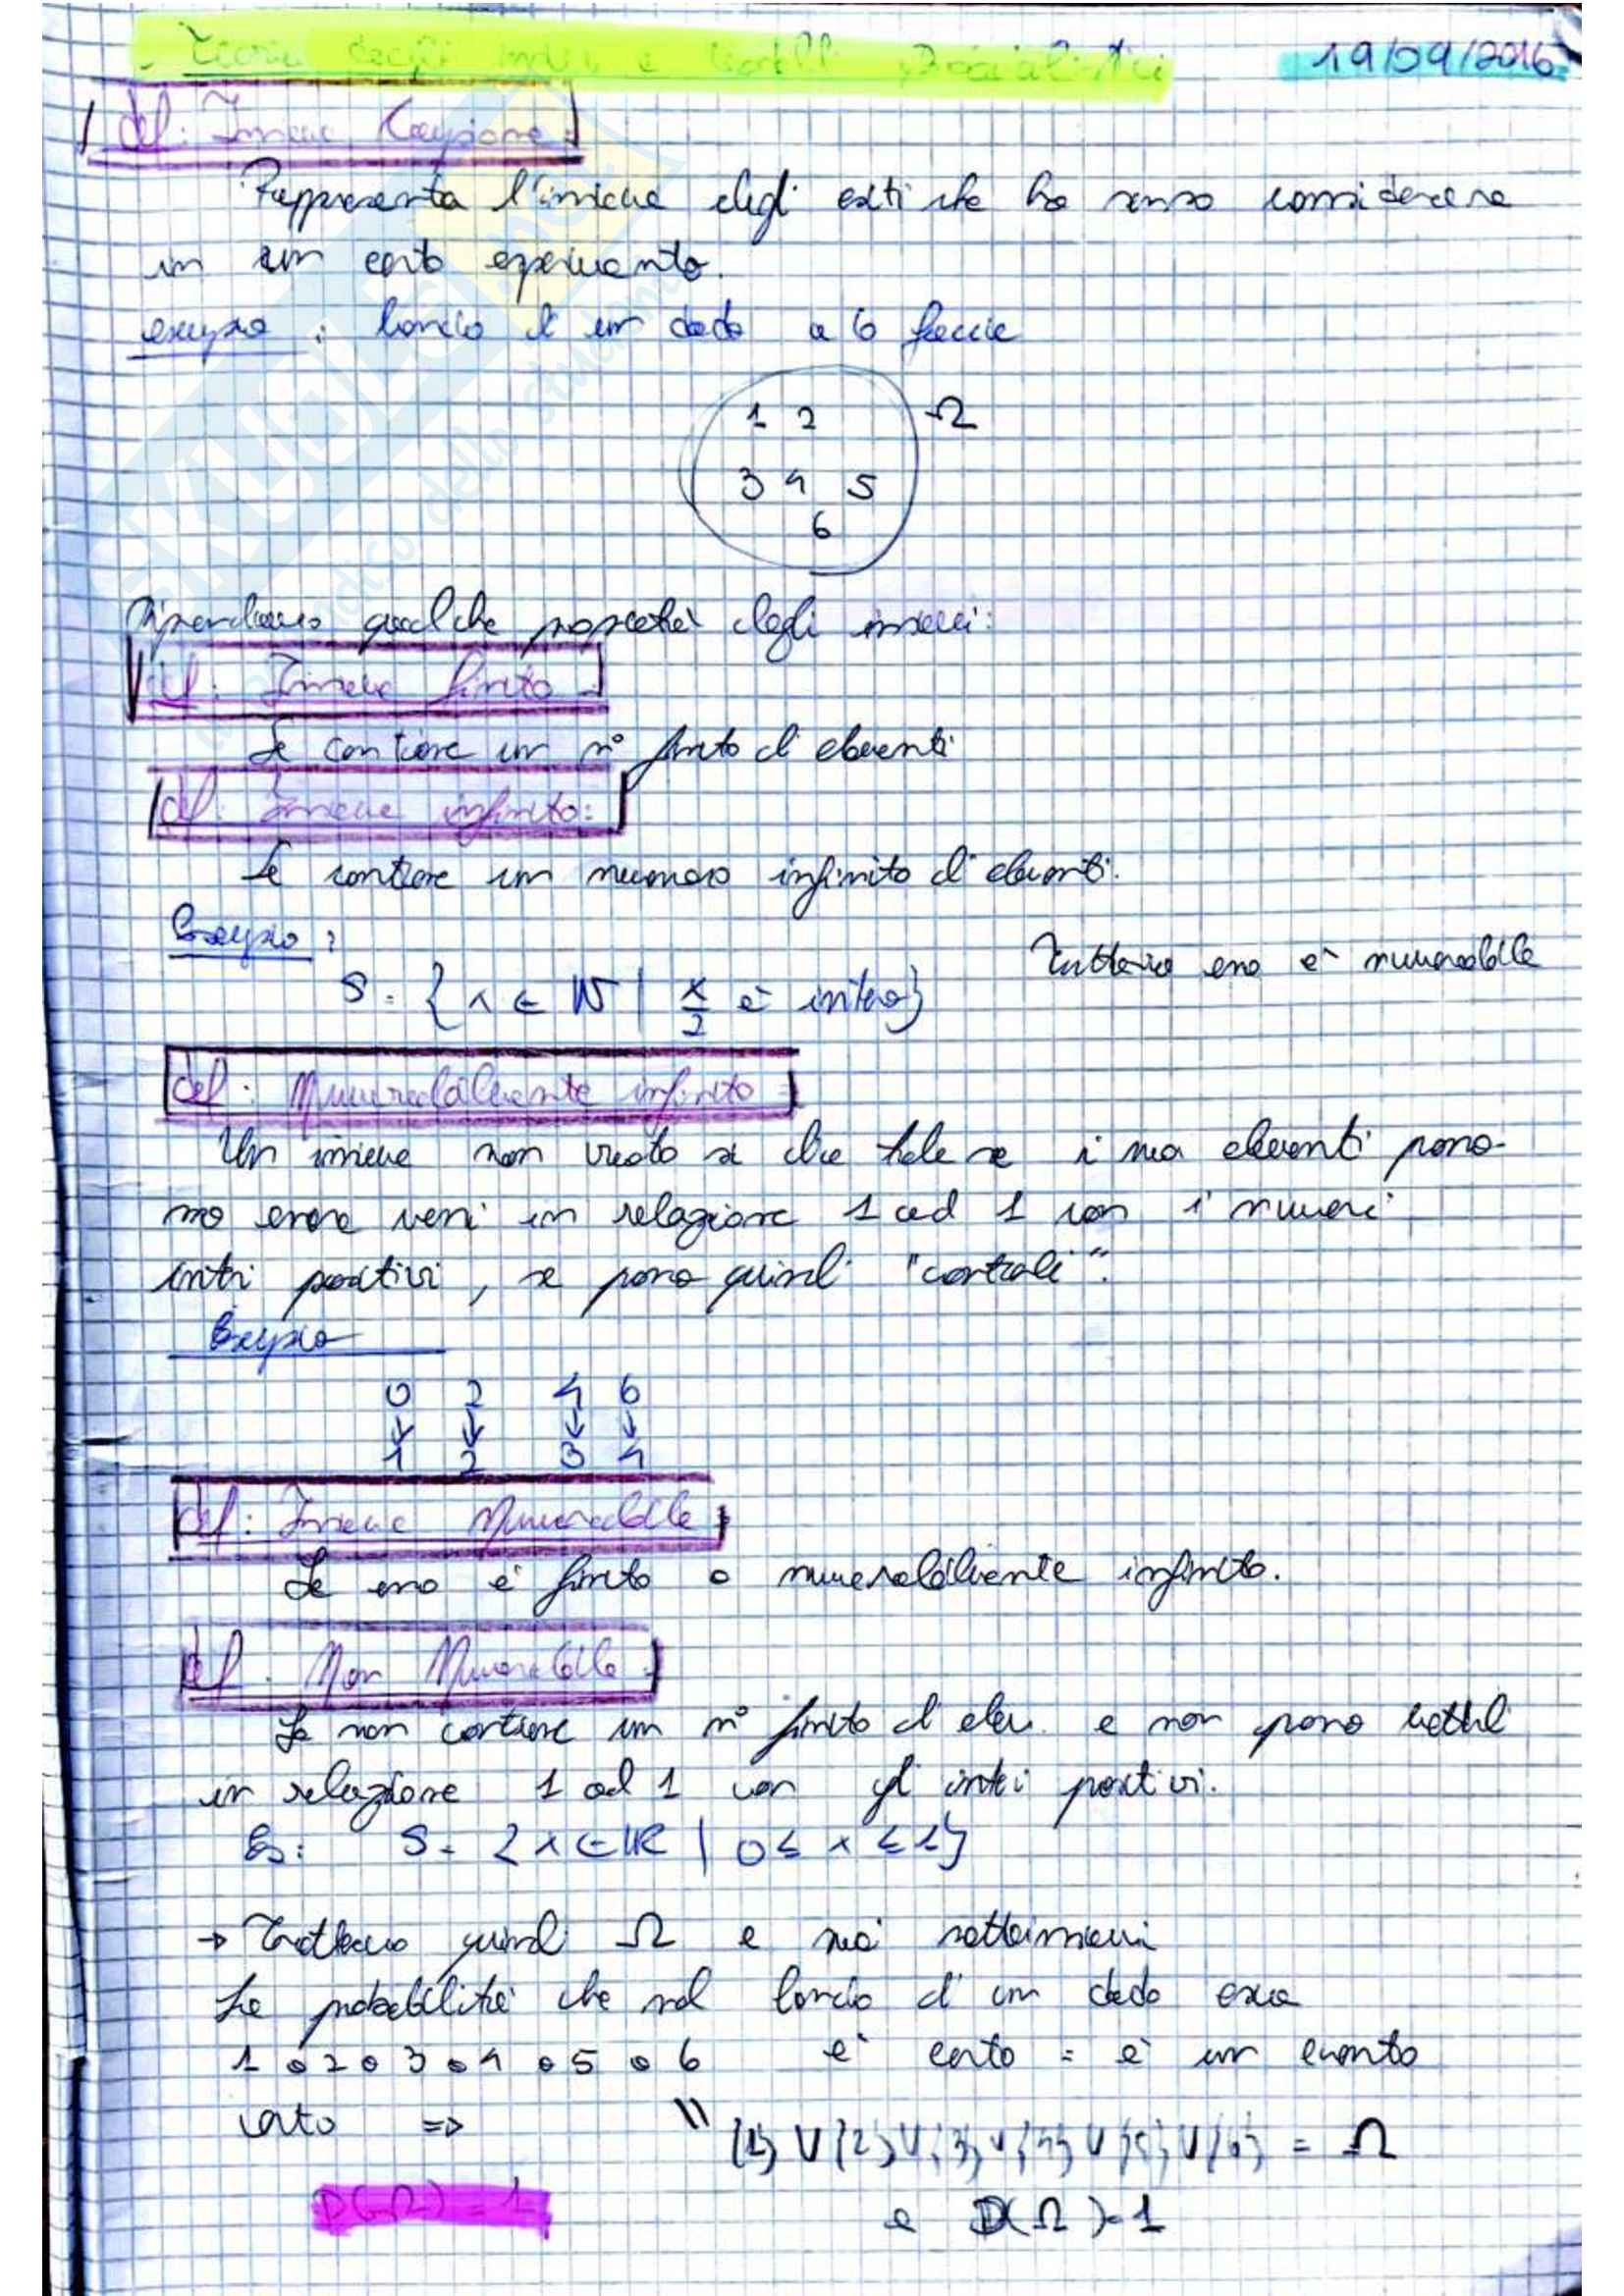 Teoria degli insiemi e modelli probabilistici 19/09/2016
def: Insieme Campione:
Rappresenta l'insieme degli esiti che ha senso considerare
in un certo esperimento.
esempio: lancio di un dado a 6 faccie
1 2 Ω
3 4 5
6
Riprendiamo qualche proprietà degli insiemi:
def: Insieme finito:
Se contiene un n° finito di elementi
def: Insieme infinito:
Se contiene un numero infinito di elementi.
Esempio:
S = {x ∈ N | x/2 è intero} Tuttavia esso è numerabile
def: Numerabilmente infinito:
Un insieme non vuoto si dice tale se i suoi elementi posso-
no essere messi in relazione 1 ad 1 con i numeri
interi positivi, se posso quindi "contarli".
Esempio
0 2 4 6
↓ ↓ ↓ ↓
1 2 3 4
def: Insieme Numerabile:
Se esso è finito o numerabilmente infinito.
def. Non Numerabile:
Se non contiene un n° finito di elem. e non posso metterli
in relazione 1 ad 1 con gli interi positivi.
Es: S = {x ∈ R | 0 ≤ x ≤ 1}
→ Trattiamo quindi Ω e suoi sottoinsiemi
La probabilità che nel lancio di un dado esca
1 o 2 o 3 o 4 o 5 o 6 è certo = è un evento
certo => " {1} U {2} U {3} U {4} U {5} U {6} = Ω
P(Ω) = 1 e P(Ω) = 1